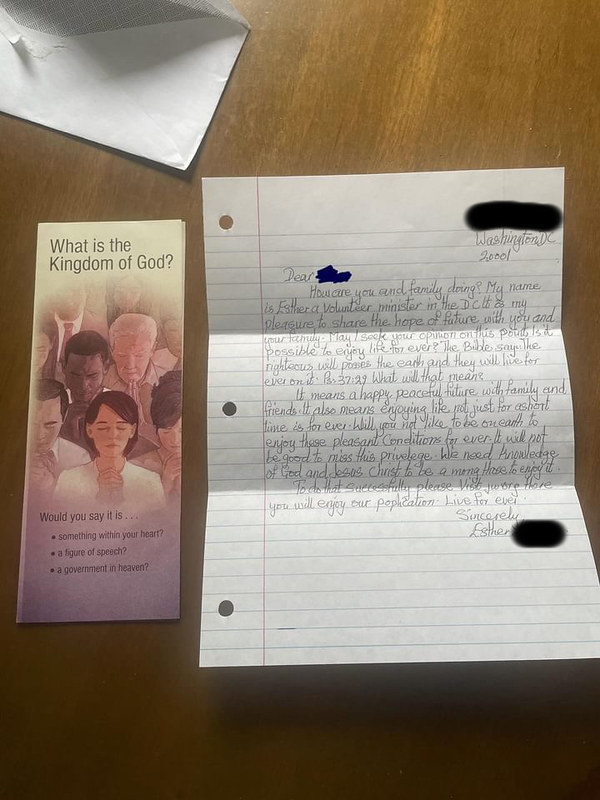 What is the
Kingdom of God?
Would you say it is . . .
• something within your heart?
• a figure of speech?
• a government in heaven?
Washington, DC
20001
Dear
How are you and family doing? My name
is Esther a volunteer minister in the DC. It is my
pleasure to share the hope of future with you and
your family. May I seek your opinion on this point? Is it
possible to enjoy life for ever? The Bible say: The
righteous will posses the earth and they will live for
ever on it. Ps: 37:29. What will that mean?
It means a happy peaceful future with family and
friends. It also means enjoying life not just for a short
time is for ever. Will you not like to be on earth to
enjoy these pleasant Conditions for ever. It will not
be good to miss this privelege. We need Knowledge
of God and Jesus Christ to be a mong those to enjoy it.
To do that successfully please Visit jw.org there
you will enjoy our poplication. Live for ever.
Sincerely
Esther